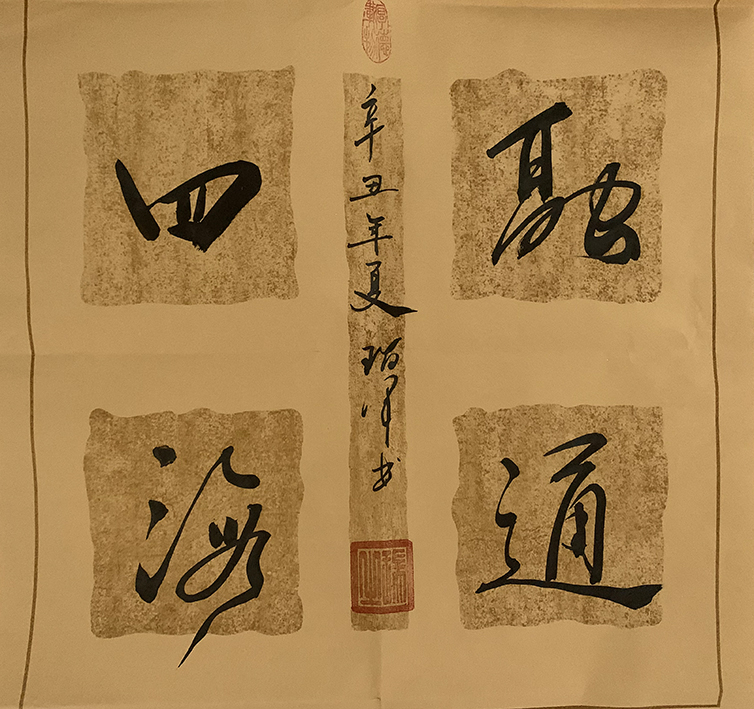 融通
四海
辛丑年夏
书